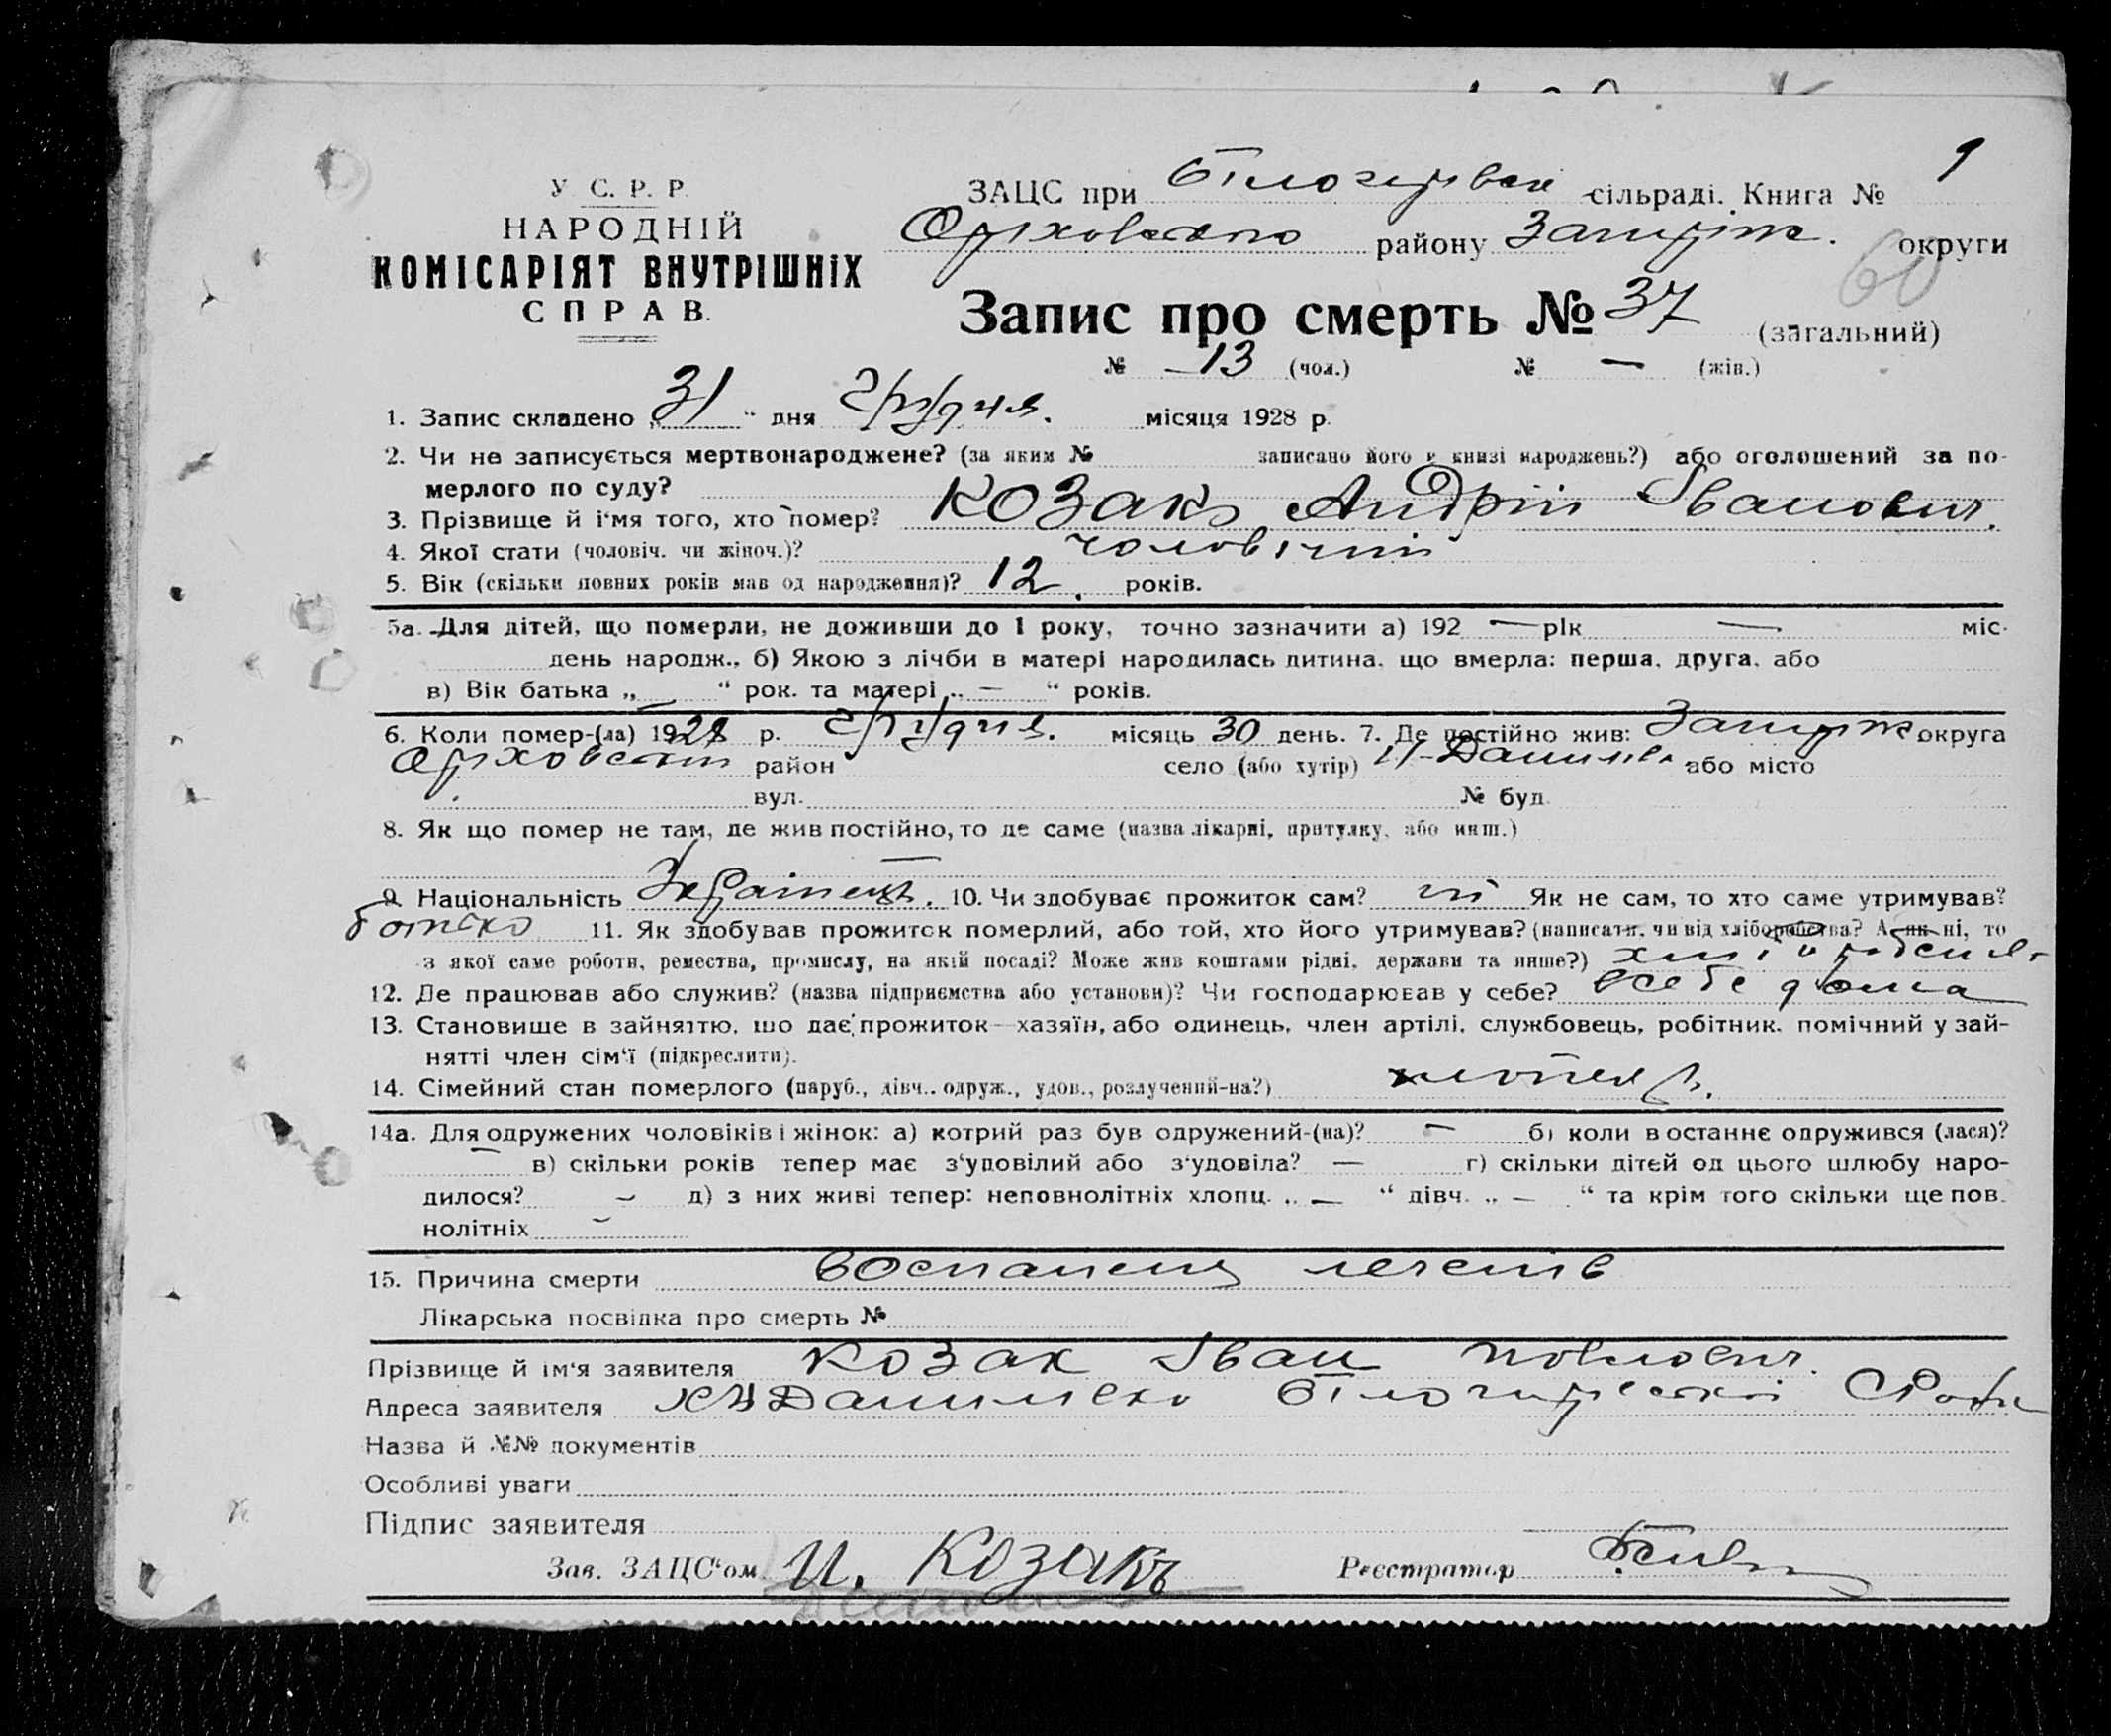 У. С. Р. Р.
НАРОДНІЙ
КОМІСАРІЯТ ВНУТРІШНІХ
СПРАВ.
ЗАЦС при Білогирвскі сільраді. Книга № 1
Оріховського району Запоріж. округи
60
Запис про смерть № 37 (загальний)
№ 13 (чол.) № — (жін.)
1. Запис складено „31“ дня Грудня. місяця 1928 р.
2. Чи не записується мертвонароджене? (за яким № записано його в книзі народжень?) або оголошений за по-
мерлого по суду?
3. Прізвище й і'мя того, хто помер? Козакъ Андрій Іванович.
4. Якої стати (чоловіч. чи жіноч.)? чоловічий
5. Вік (скільки повних років мав од народження)? 12. років.
5а. Для дітей, що померли, не доживши до 1 року, точно зазначити а) 192 — рік — міс.
день народж., б) Якою з лічби в матері народилась дитина, що вмерла: перша, друга, або
в) Вік батька „ — “ рок. та матері „ — “ років.
6. Коли помер-(ла) 1928 р. грудня. місяць 30 день. 7. Де постійно жив: Запоріж. округа
Оріховський район село (або хутір) або місто
вул. № буд.
8. Як що помер не там, де жив постійно, то де саме (назва лікарні, притулку, або инш.)
—
9. Національність Українець. 10. Чи здобуває прожиток сам? ні Як не сам, то хто саме утримував?
батько 11. Як здобував прожиток померлий, або той, хто його утримував? (написати, чи від хліборобства? А як ні, то
з якої саме роботи, ремества, промислу, на якій посаді? Може жив коштами рідні, держави та инше?)
12. Де працював або служив? (назва підприємства або установи)? Чи господарював у себе? всебе дома
13. Становище в зайняттю, що дає прожиток—хазяїн, або одинець, член артілі, службовець, робітник, помічний у зай-
нятті член сім'ї (підкреслити).
14. Сімейний стан померлого (паруб., дівч., одруж., удов., розлучений-на?)
14а. Для одружених чоловіків і жінок: а) котрий раз був одружений-(на)? — б) коли в останнє одружився (лася)?
— в) скільки років тепер має з'уповілий або з'удовіла? — г) скільки дітей од цього шлюбу наро-
дилося? — д) з них живі тепер: неповнолітніх хлопц. „ — “ дівч. „ — “ та крім того скільки ще пов.
нолітніх —
15. Причина смерти
Лікарська посвідка про смерть №
Прізвище й ім'я заявителя Козак Іван Повлович.
Адреса заявителя
Назва й №№ документів
Особливі уваги
Підпис заявителя
Зав. ЗАЦС'ом И. Козакъ Реєстратор